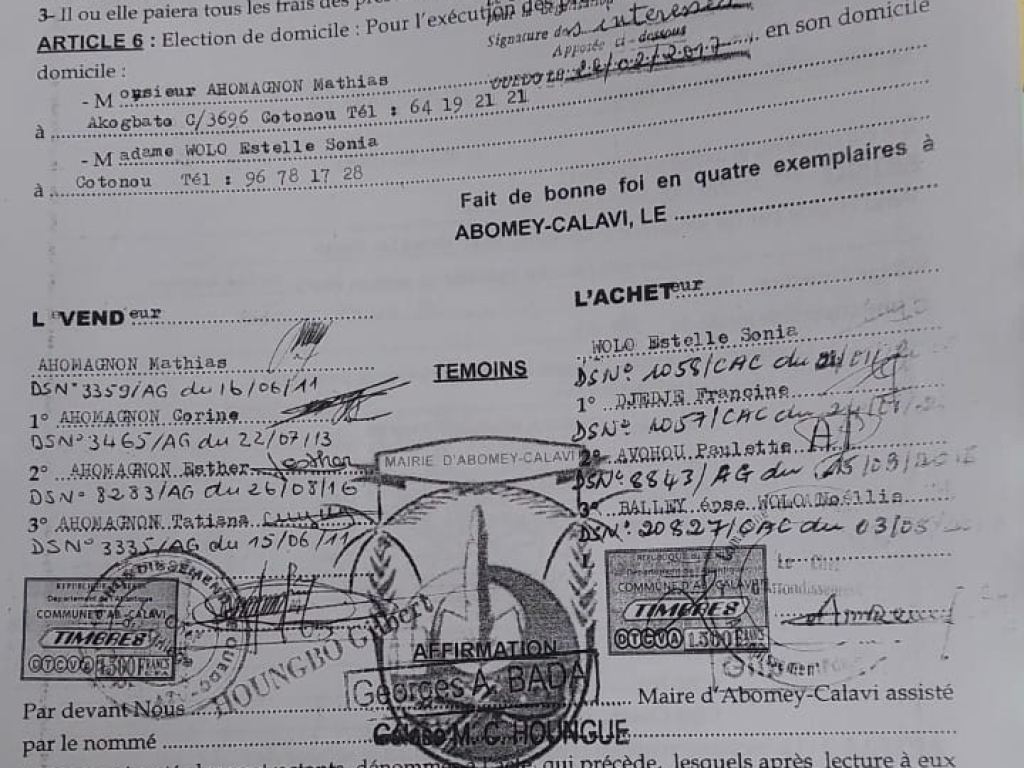 3- Il ou elle paiera tous les frais des
ARTICLE 6 : Election de domicile : Pour l'exécution des
Signature des intéressés
Apposée ci-dessous
domicile :
en son domicile
- Monsieur AHOMAGNON Mathias
à Akogbato C/3696 Cotonou Tél : 64 19 21 21
- Madame WOLO Estelle Sonia
à Cotonou Tél : 96 78 17 28
Fait de bonne foi en quatre exemplaires à
ABOMEY-CALAVI, LE
LE VENDeur
L'ACHETeur
AHOMAGNON Mathias
WOLO Estelle Sonia
DSN°3359/AG du 16/06/11
TEMOINS
DSN° 1058/CAC du
1° AHOMAGNON Corine
1° DJEDJE Francine
DSN°3465/AG du 22/07/13
DSN° 1057/CAC du
2° AHOMAGNON Esther
MAIRIE D'ABOMEY-CALAVI
2° AVOHOU Paulette
DSN° 8283/AG du 26/08/16
DSN° 8843/AG du
3° AHOMAGNON Tatiana
3° BALLEY épse WOLO Noéllie
DSN° 3335/AG du 15/06/11
DSN° 20827/CAC du 03/03
COMMUNE D'AB-CALAVI
TIMBRES
OTCVA 1.500 FRANCS
COMMUNE D'AB-CALAVI
TIMBRES
OTCVA 1.500 FRANCS
HOUNGBO Gilbert
AFFIRMATION
Georges A. BADA
Par devant Nous
Maire d'Abomey-Calavi assisté
par le nommé
M. C. HOUNGUE
qui précède, lesquels après lecture à eux